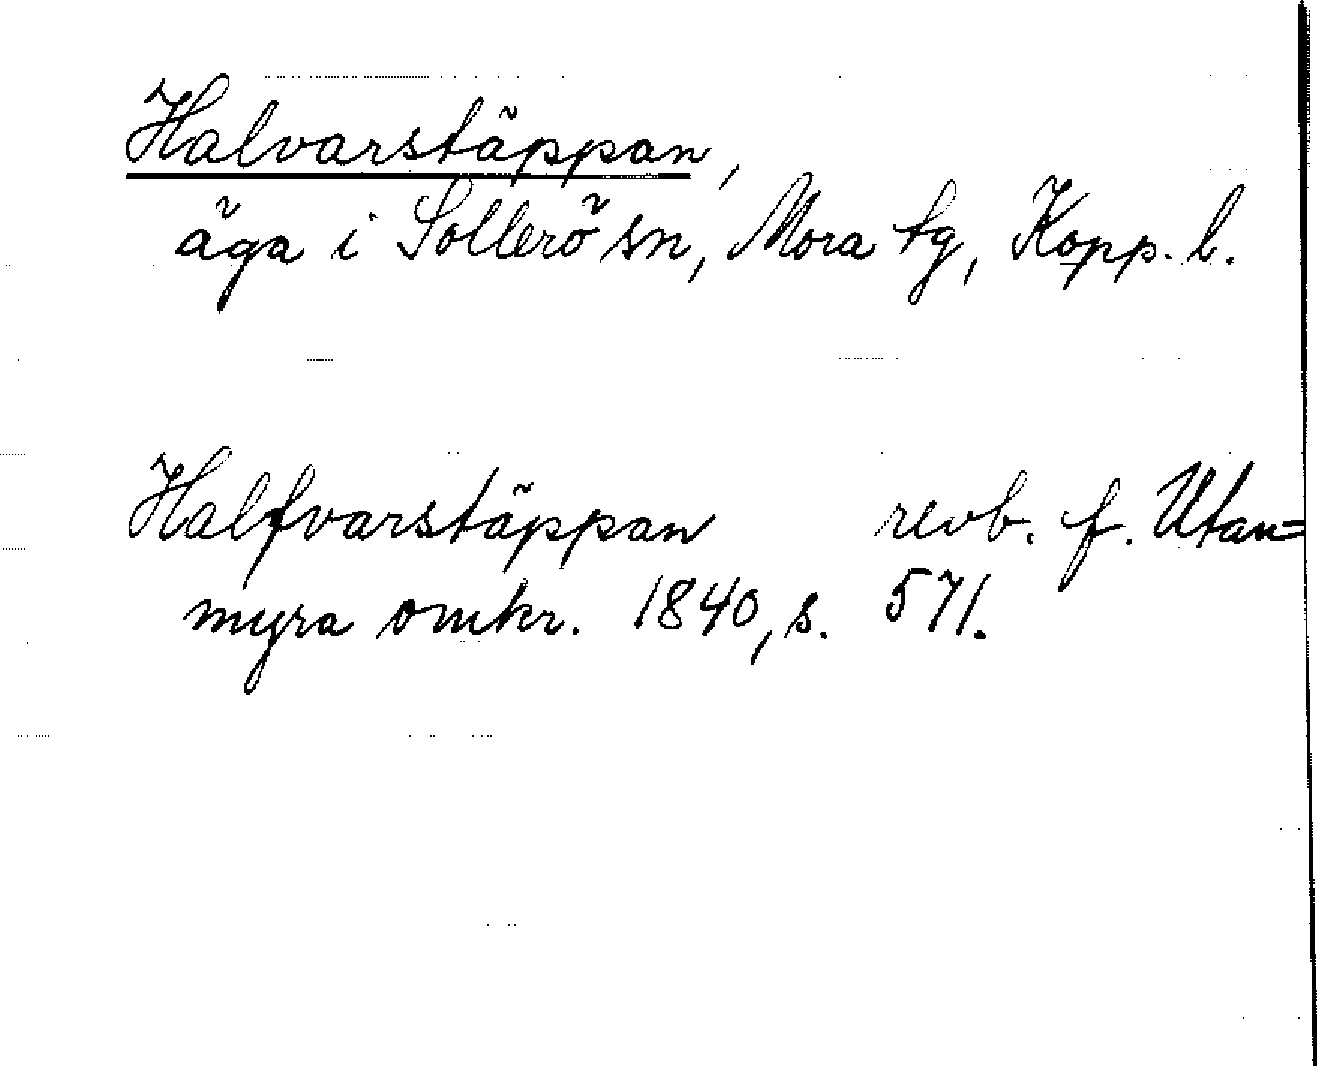 Halvarstäppan,
äga i Sollerö sn, Mora tg, Kopp. l.
Halfvarstäppan revb. f. Utan=
myra omkr. 1840, s. 571.